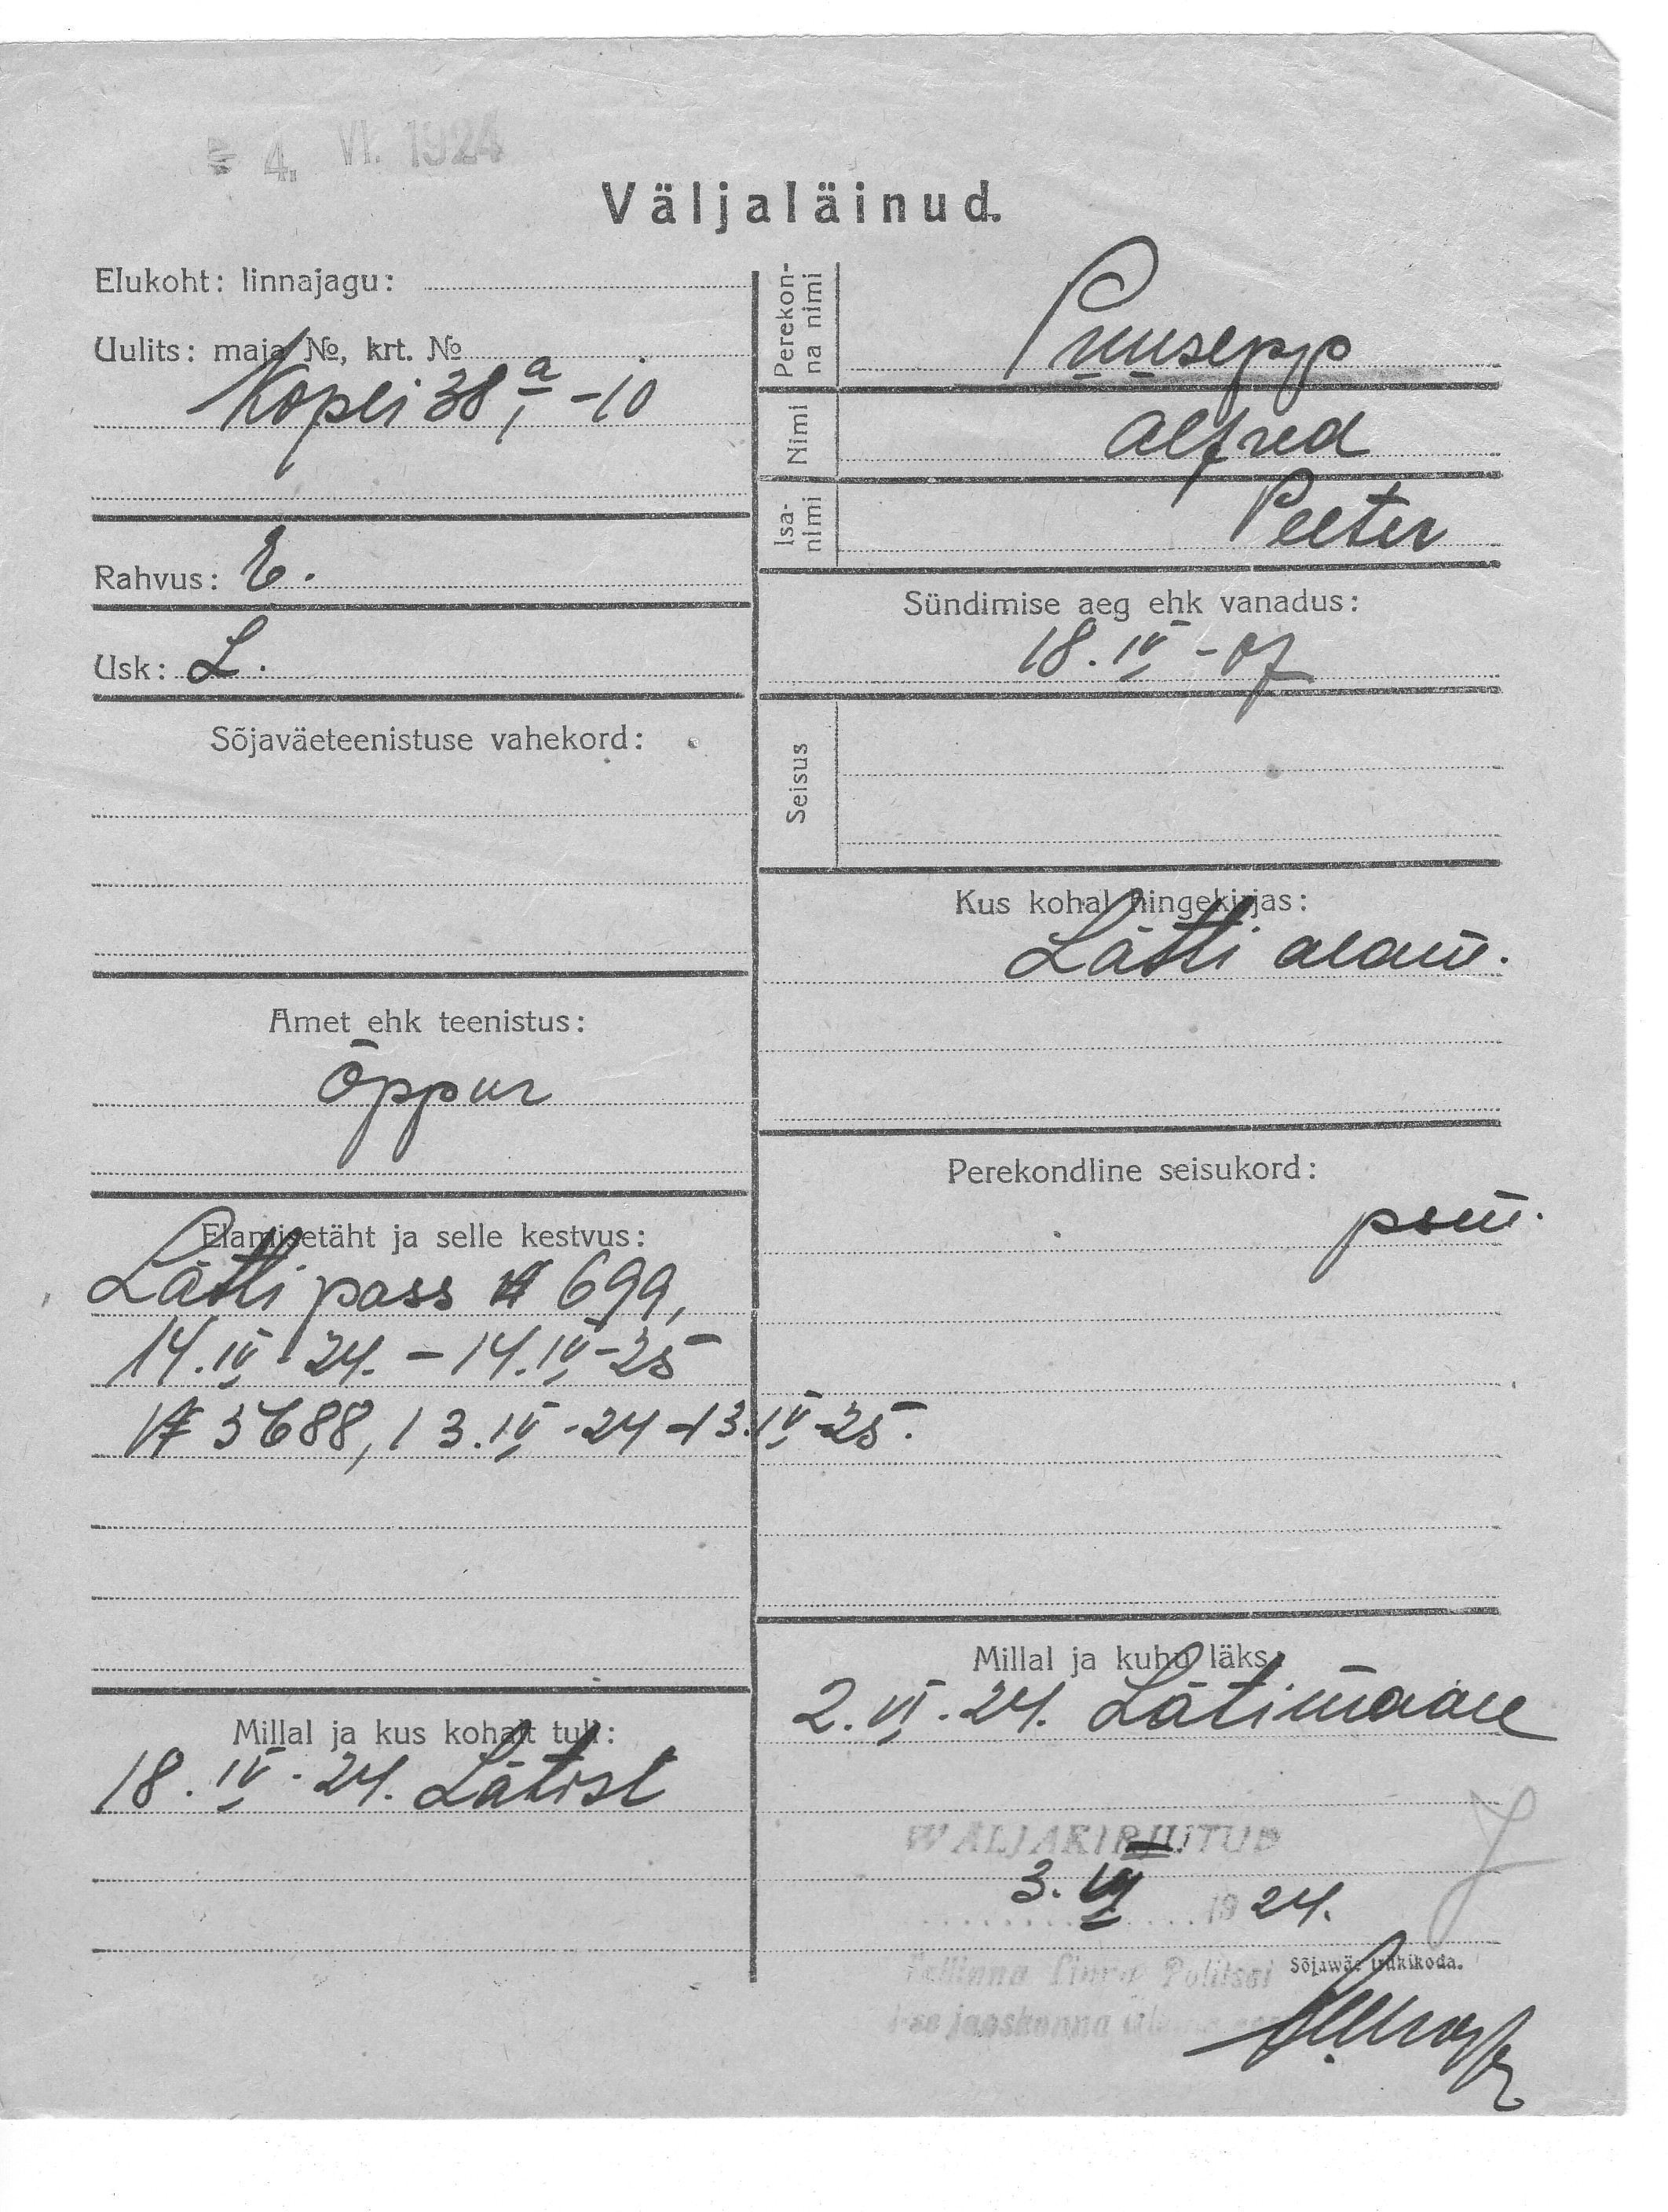 4. VI. 1924
Väljaläinud.
Elukoht: linnajagu:
Uulits: maja №, krt. №
Kopli 38ª-10
Rahvus: E.
Usk: L.
Sõjaväeteenistuse vahekord:
Amet ehk teenistus:
Õppur
Elamisetäht ja selle kestvus:
Lätti pass № 699,
14.IV-24. – 14.IV-25
№ 3688, 13.IV-24-13.IV-25.
Millal ja kus kohalt tuli:
18.IV-24. Lätist
Perekonna nimi
Puusepp
Nimi
Alfred
Isanimi
Peeter
Sündimise aeg ehk vanadus:
18.IV-07
Seisus
Kus kohal hingekirjas:
Lätti alam.
Perekondline seisukord:
psm.
Millal ja kuhu läks
2.VI.24. Lätimaale
WÄLJAKIRJUTUD
3. VI 1924.
Tallinna Linna Politsei
Sõjawäe trükikoda.
jaoskonna